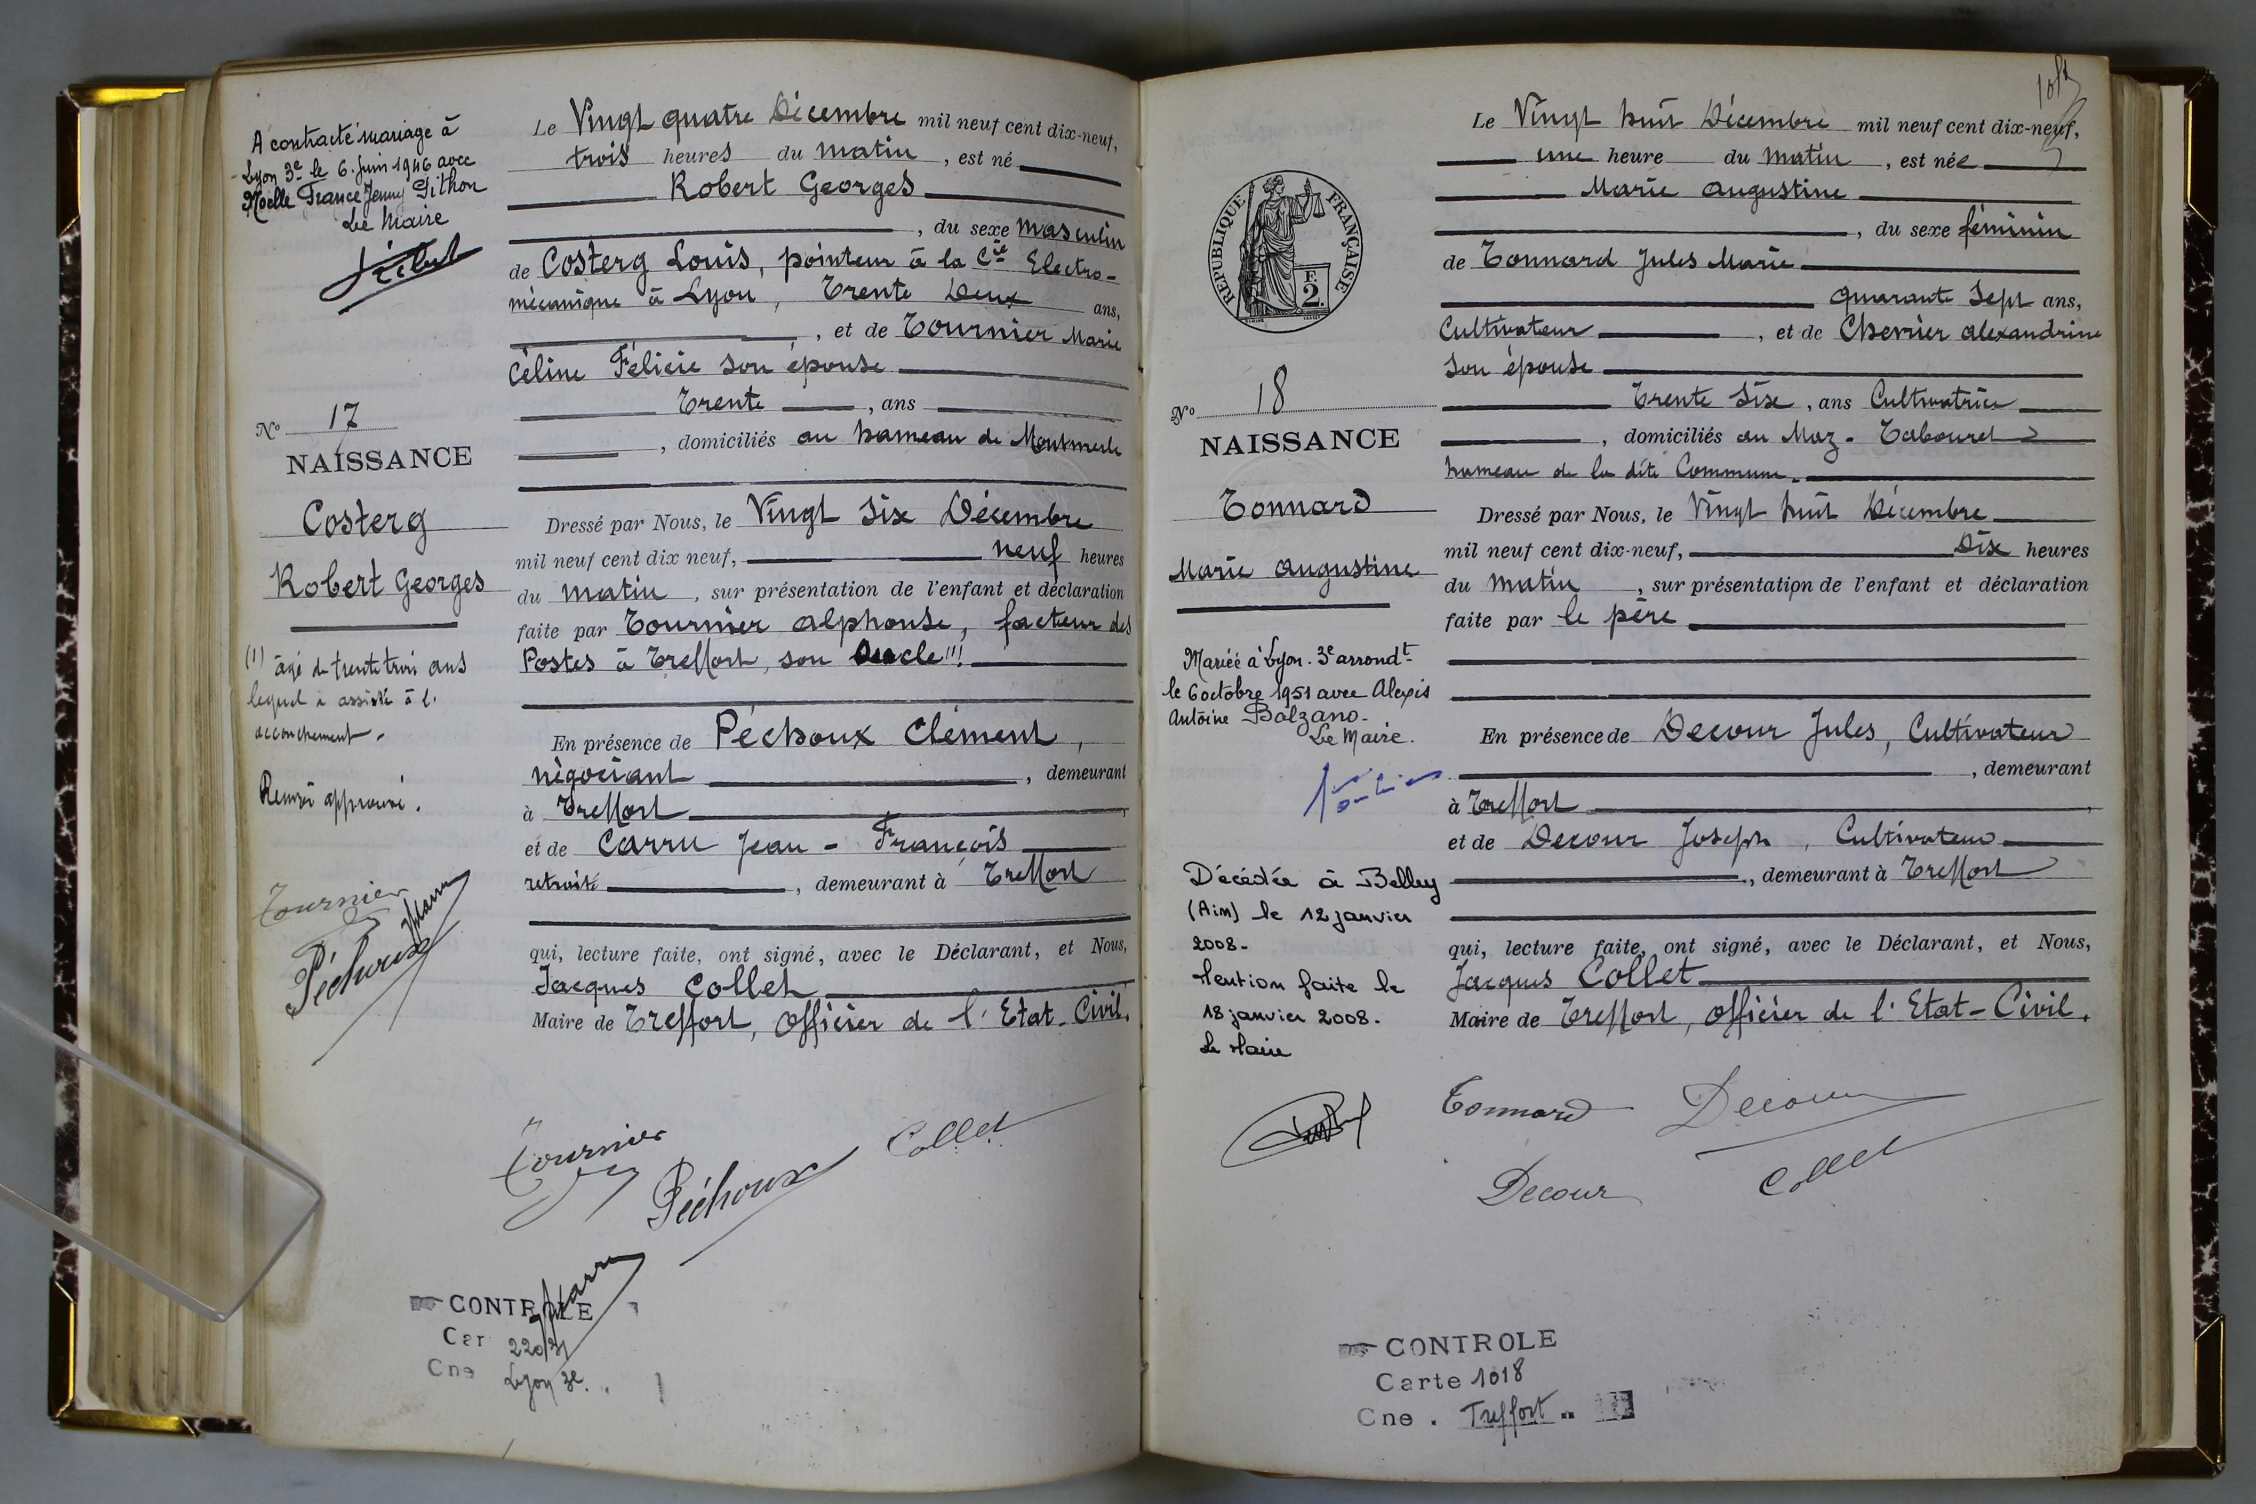 A contracté mariage à
Lyon 3e le 6 Juin 1946 avec
Noelle France Jenny Pithon
Le Maire
No 17
NAISSANCE
Costerg
Robert Georges
(1) âgé de trente trois ans
lequel a assisté à l'
accouchement.
Renvoi approuvé.
Tournier
Péchoux
Le Vingt quatre Décembre mil neuf cent dix-neuf,
trois heures du matin, est né
Robert Georges
, du sexe masculin
de Costerg Louis, pointeur à la Cie Electro-
mécanique à Lyon, Trente Deux ans,
, et de Tournier Marie
Céline Félicie son épouse
Trente , ans
, domiciliés au hameau de Montmerle
Dressé par Nous, le Vingt Six Décembre
mil neuf cent dix neuf, neuf heures
du matin, sur présentation de l'enfant et déclaration
faite par Tournier alphonse, facteur des
Postes à Treffort, son Oncle (1)
En présence de Péchoux Clément,
négociant , demeurant
à Treffort,
et de Carru Jean - François
retraité , demeurant à Treffort
qui, lecture faite, ont signé, avec le Déclarant, et Nous,
Jacques Collet
Maire de Treffort, Officier de l'Etat-Civil.
Tournier
Péchoux
Collet
JfCarru
CONTROLE
Car 220/31
Cne Lyon 3e.
No 18
NAISSANCE
Tonnard
Marie Augustine
Mariée à Lyon. 3e arrondt
le 6 octobre 1951 avec Alexis
Antoine Balzano.
Le Maire.
Décédée à Belley
(Ain) le 12 janvier
2008.
Mention faite le
18 janvier 2008.
Le Maire
RÉPUBLIQUE FRANÇAISE
F.
2.
Le Vingt huit Décembre mil neuf cent dix-neuf,
une heure du matin, est née
Marie Augustine
, du sexe féminin
de Tonnard Jules Marie
quarante Sept ans,
Cultivateur , et de Chevrier Alexandrine
Son épouse
Trente Six, ans Cultivatrice
, domiciliés au Maz-Tabouret
hameau de la dite Commune.
Dressé par Nous, le Vingt huit Décembre
mil neuf cent dix-neuf, Dix heures
du matin, sur présentation de l'enfant et déclaration
faite par le père
En présence de Decour Jules, Cultivateur
, demeurant
à Treffort,
et de Decour Joseph, Cultivateur
, demeurant à Treffort
qui, lecture faite, ont signé, avec le Déclarant, et Nous,
Jacques Collet
Maire de Treffort, Officier de l'Etat-Civil.
Tonnard
Decour
Decour
Collet
CONTROLE
Carte 1018
Cne. Treffort